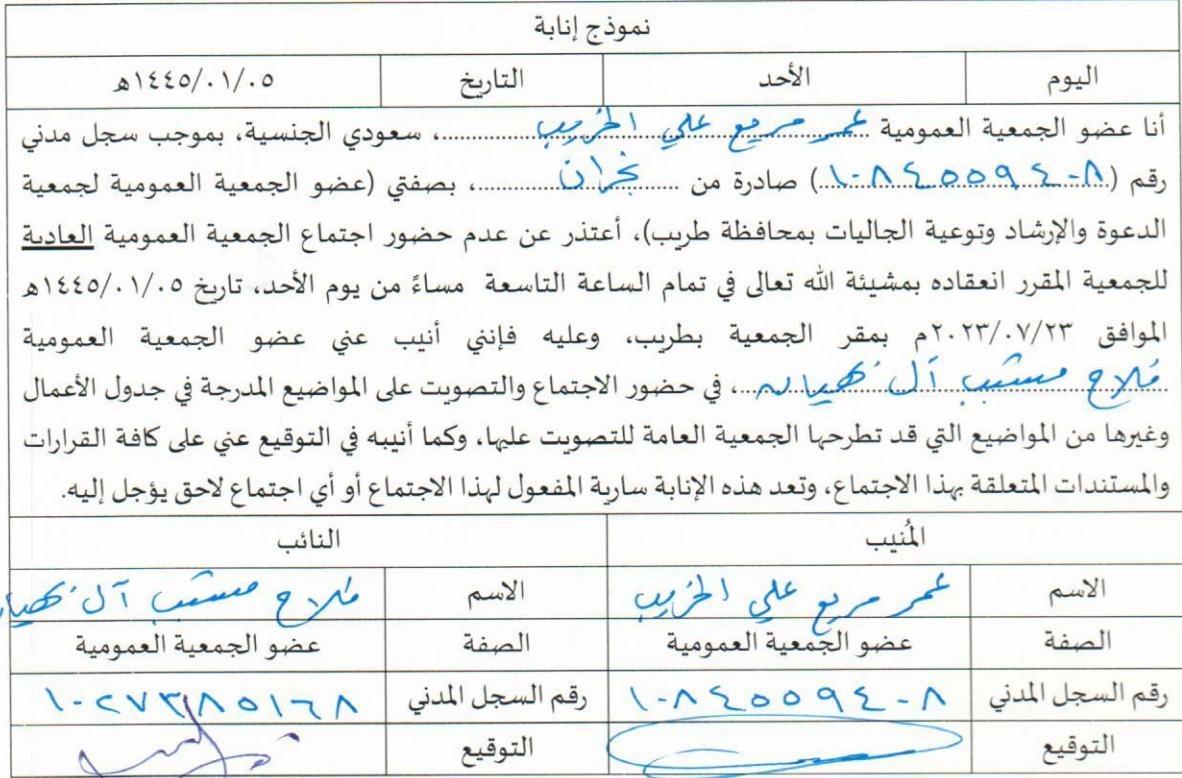 نموذج إنابة
اليوم الأحد التاريخ ١٤٤٥/٠١/٠٥هـ
أنا عضو الجمعية العمومية عمر مريع علي الخريب، سعودي الجنسية، بموجب سجل مدني
رقم (١٠٨٤٥٥٩٤٠٨) صادرة من نجران، بصفتي (عضو الجمعية العمومية لجمعية
الدعوة والإرشاد وتوعية الجاليات بمحافظة طريب)، أعتذر عن عدم حضور اجتماع الجمعية العمومية العادية
للجمعية المقرر انعقاده بمشيئة الله تعالى في تمام الساعة التاسعة مساءً من يوم الأحد، تاريخ ١٤٤٥/٠١/٠٥هـ
الموافق ٢٠٢٣/٠٧/٢٣م بمقر الجمعية بطريب، وعليه فإنني أنيب عني عضو الجمعية العمومية
فلاح مسبب آل، في حضور الاجتماع والتصويت على المواضيع المدرجة في جدول الأعمال
وغيرها من المواضيع التي قد تطرحها الجمعية العامة للتصويت عليها، وكما أنيبه في التوقيع عني على كافة القرارات
والمستندات المتعلقة بهذا الاجتماع، وتعد هذه الإنابة سارية المفعول لهذا الاجتماع أو أي اجتماع لاحق يؤجل إليه.
المُنيب النائب
الاسم عمر مريع علي الخريب الاسم فلاح مسبب آل
الصفة عضو الجمعية العمومية الصفة عضو الجمعية العمومية
رقم السجل المدني ١٠٨٤٥٥٩٤٠٨ رقم السجل المدني ١٠٢٧٣٨٥١٦٨
التوقيع التوقيع